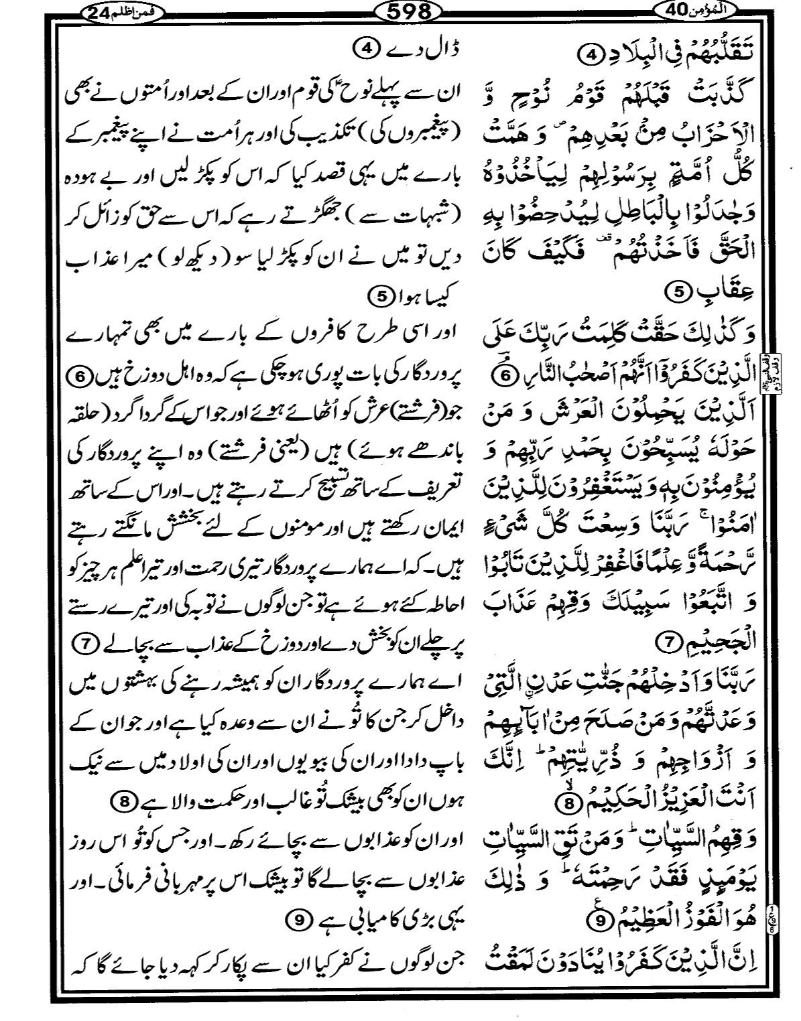 المؤمن 40
598
فمن اظلم 24
تَقَلُّبُهُمْ فِي الْبِلَادِ ④
كَذَّبَتْ قَبْلَهُمْ قَوْمُ نُوْحٍ وَّ
الْاَحْزَابُ مِنْۢ بَعْدِهِمْ ۪ وَ هَمَّتْ
كُلُّ اُمَّةٍۭ بِرَسُوْلِهِمْ لِيَاْخُذُوْهُ
وَجٰدَلُوْا بِالْبَاطِلِ لِيُدْحِضُوْا بِهِ
الْحَقَّ فَاَخَذْتُهُمْ ۫ فَكَيْفَ كَانَ
عِقَابِ ⑤
وَكَذٰلِكَ حَقَّتْ كَلِمَتُ رَبِّكَ عَلَى
الَّذِيْنَ كَفَرُوْۤا اَنَّهُمْ اَصْحٰبُ النَّارِ ⑥
اَلَّذِيْنَ يَحْمِلُوْنَ الْعَرْشَ وَ مَنْ
حَوْلَهٗ يُسَبِّحُوْنَ بِحَمْدِ رَبِّهِمْ وَ
يُؤْمِنُوْنَ بِهٖ وَيَسْتَغْفِرُوْنَ لِلَّذِيْنَ
اٰمَنُوْا ۚ رَبَّنَا وَسِعْتَ كُلَّ شَيْءٍ
رَّحْمَةً وَّعِلْمًا فَاغْفِرْ لِلَّذِيْنَ تَابُوْا
وَ اتَّبَعُوْا سَبِيْلَكَ وَقِهِمْ عَذَابَ
الْجَحِيْمِ ⑦
رَبَّنَا وَاَدْخِلْهُمْ جَنّٰتِ عَدْنِ ۨالَّتِيْ
وَعَدْتَّهُمْ وَمَنْ صَلَحَ مِنْ اٰبَآىِٕهِمْ
وَ اَزْوَاجِهِمْ وَ ذُرِّيّٰتِهِمْ ؕ اِنَّكَ
اَنْتَ الْعَزِيْزُ الْحَكِيْمُ ⑧
وَقِهِمُ السَّيِّاٰتِ ؕ وَمَنْ تَقِ السَّيِّاٰتِ
يَوْمَىِٕذٍ فَقَدْ رَحِمْتَهٗ ؕ وَ ذٰلِكَ
هُوَ الْفَوْزُ الْعَظِيْمُ ⑨
اِنَّ الَّذِيْنَ كَفَرُوْا يُنَادَوْنَ لَمَقْتُ
ڈال دے ④
ان سے پہلے نوحؑ کی قوم اور ان کے بعد اور اُمتوں نے بھی
(پیغمبروں کی) تکذیب کی اور ہر اُمت نے اپنے پیغمبر کے
بارے میں یہی قصد کیا کہ اس کو پکڑ لیں اور بے ہودہ
(شبہات سے) جھگڑتے رہے کہ اس سے حق کو زائل کر
دیں تو میں نے ان کو پکڑ لیا سو (دیکھ لو) میرا عذاب
کیسا ہوا ⑤
اور اسی طرح کافروں کے بارے میں بھی تمہارے
پروردگار کی بات پوری ہو چکی ہے کہ وہ اہل دوزخ ہیں ⑥
جو (فرشتے) عرش کو اُٹھائے ہوئے اور جو اس کے گردا گرد (حلقہ
باندھے ہوئے) ہیں (یعنی فرشتے) وہ اپنے پروردگار کی
تعریف کے ساتھ تسبیح کرتے رہتے ہیں۔ اور اس کے ساتھ
ایمان رکھتے ہیں اور مومنوں کے لئے بخشش مانگتے رہتے
ہیں۔ کہ اے ہمارے پروردگار تیری رحمت اور تیرا علم ہر چیز کو
احاطہ کئے ہوئے ہے تو جن لوگوں نے توبہ کی اور تیرے رستے
پر چلے ان کو بخش دے اور دوزخ کے عذاب سے بچا لے ⑦
اے ہمارے پروردگار ان کو ہمیشہ رہنے کی بہشتوں میں
داخل کر جن کا تُو نے ان سے وعدہ کیا ہے اور جو ان کے
باپ دادا اور ان کی بیویوں اور ان کی اولاد میں سے نیک
ہوں ان کو بھی بیشک تُو غالب اور حکمت والا ہے ⑧
اور ان کو عذابوں سے بچائے رکھ۔ اور جس کو تُو اس روز
عذابوں سے بچا لے گا تو بیشک اس پر مہربانی فرمائی۔ اور
یہی بڑی کامیابی ہے ⑨
جن لوگوں نے کفر کیا ان سے پکار کر کہہ دیا جائے گا کہ